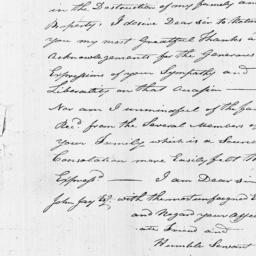 in the Destruction of my family and
Property, I desire Dear Sir to Return
you my most Greatfull Thanks &
Acknowlegements for the Generous
Expressions of your Sympathy and
Liberality on that Occasion —
Nor am I unmindful of the fa
Recd. from the Several Members of
your Family which is a Source
Consolation more Easily felt Th
Expressd — I am Dear Sir
John Jay Esqr. with the most unfeigned E
and Regard your Affec
ate Friend and
Humble Servant